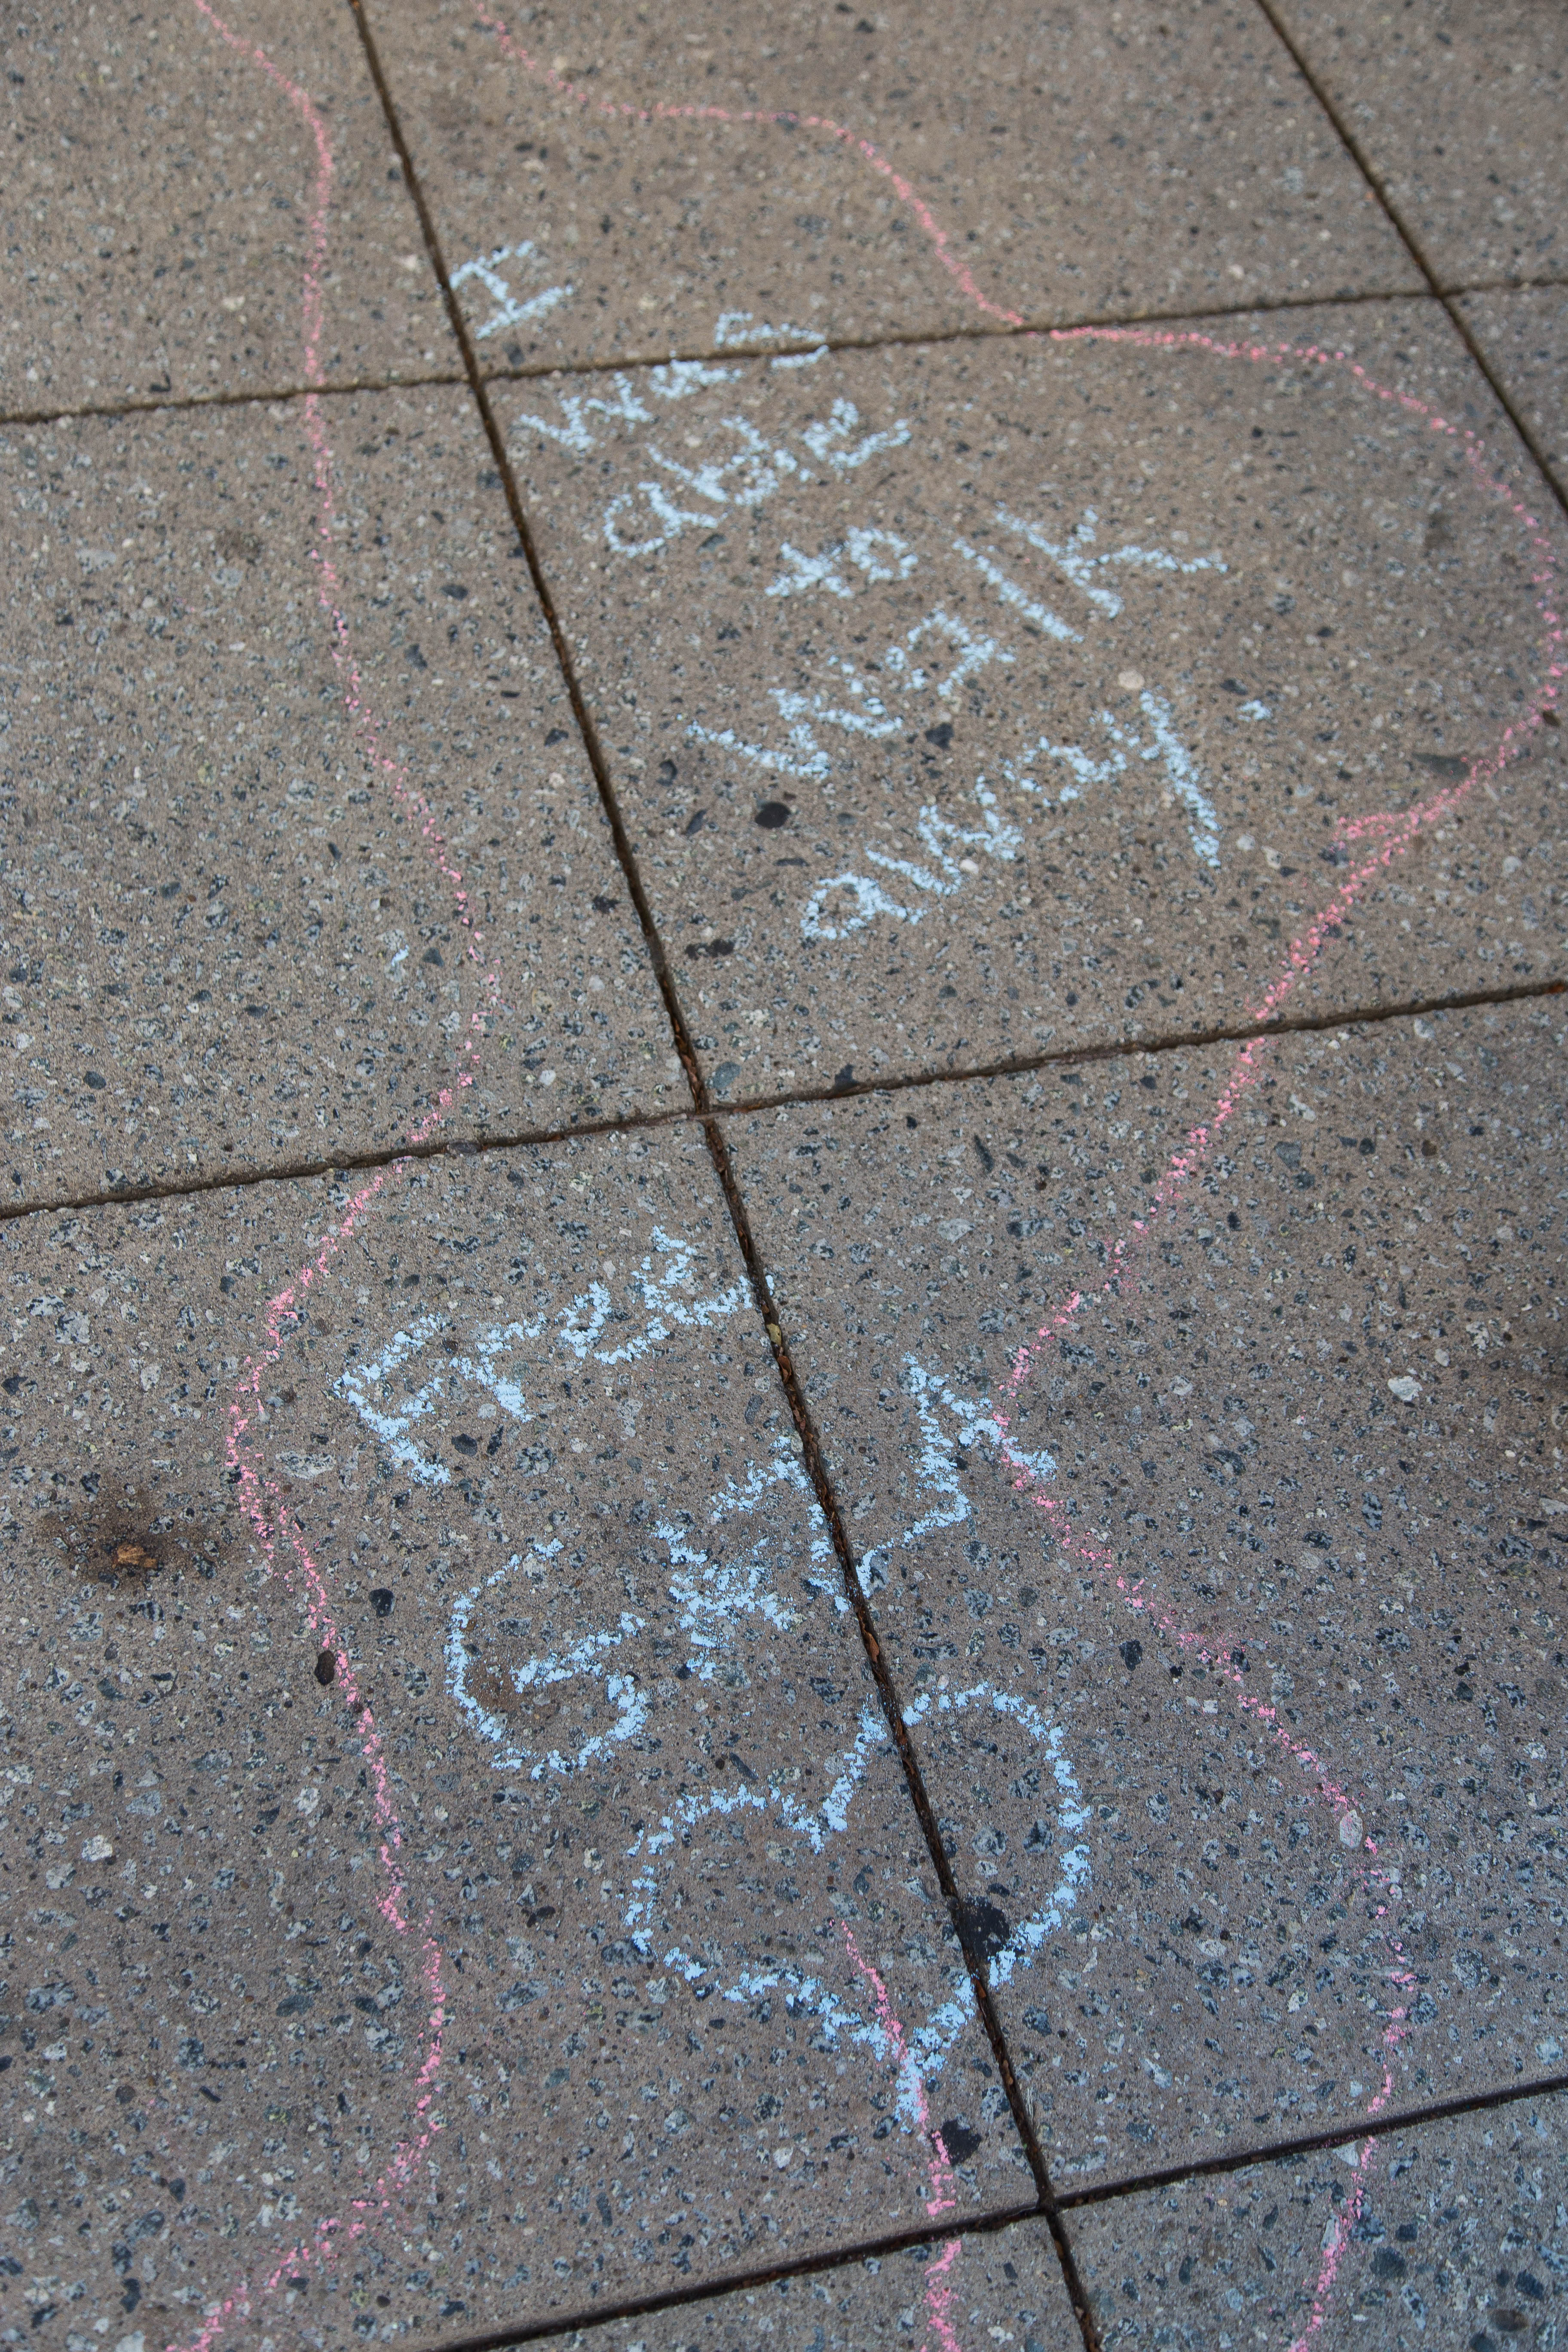 I
was
able
to
walk
away.
Free
GAZA